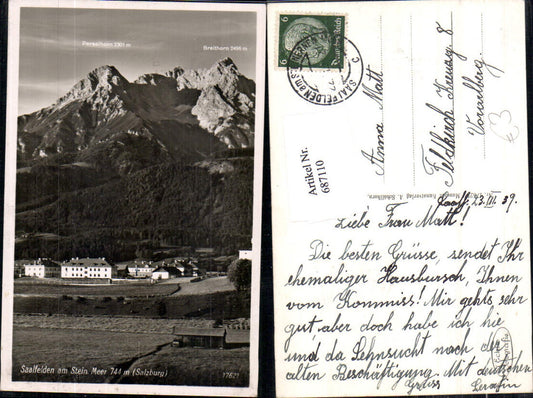 Persailhorn 2301 m
Breithorn 2496 m
Saalfelden am Stein. Meer 744 m (Salzburg)
17621
6 Deutsches Reich 6
SAALFELDEN am
Anna Matt
Feldkirch Kreuzg 8
Vorarlberg
€3
Artikel Nr.
687110
Saalf. 23.III.39.
Liebe Frau Matt!
Die besten Grüsse, sendet Ihr
ehemaliger Hausbursch, Ihnen
vom Kommiss! Mir gehts sehr
gut aber doch habe ich hie
und da Sehnsucht nach der
alten Beschäftigung. Mit deutschen
Gruss
Serafin